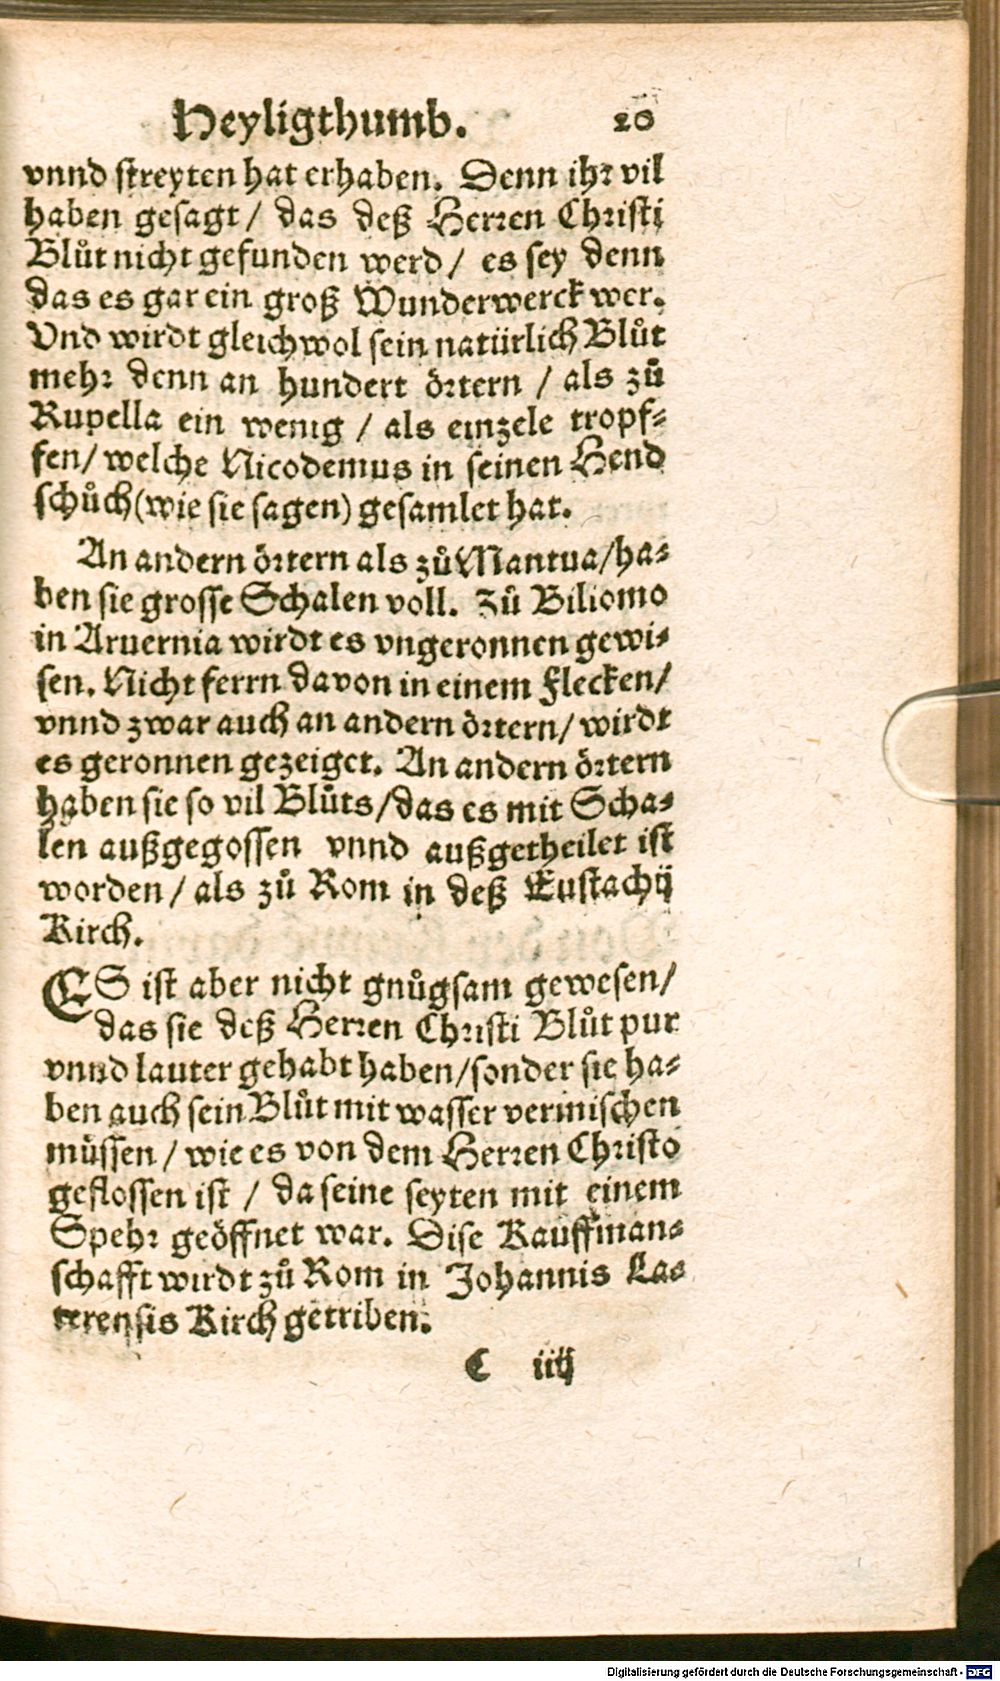 Heyligthumb. 20
vnnd streyten hat erhaben. Denn ihr vil
haben gesagt / das deß Herren Christi
Blůt nicht gefunden werd / es sey denn
das es gar ein groß Wunderwerck wer.
Vnd wirdt gleichwol sein natürlich Blůt
mehr denn an hundert örtern / als zů
Rupella ein wenig / als einzele tropf⸗
fen / welche Nicodemus in seinen Hend
schůch (wie sie sagen) gesamlet hat.
An andern örtern als zů Mantua / ha⸗
ben sie grosse Schalen voll. Zů Biliomo
in Aruernia wirdt es vngeronnen gewi⸗
sen. Nicht ferrn davon in einem Flecken /
vnnd zwar auch an andern örtern / wirdt
es geronnen gezeiget. An andern örtern
haben sie so vil Blůts / das es mit Scha⸗
len außgegossen vnnd außgetheilet ist
worden / als zů Rom in deß Eustachij
Kirch.
ES ist aber nicht gnůgsam gewesen /
das sie deß Herren Christi Blůt pur
vnnd lauter gehabt haben / sonder sie ha⸗
ben auch sein Blůt mit wasser vermischen
müssen / wie es von dem Herren Christo
geflossen ist / da seine seyten mit einem
Spehr geöffnet war. Dise Kauffman⸗
schafft wirdt zů Rom in Johannis La⸗
terensis Kirch getriben.
C iiij
Digitalisierung gefördert durch die Deutsche Forschungsgemeinschaft - DFG